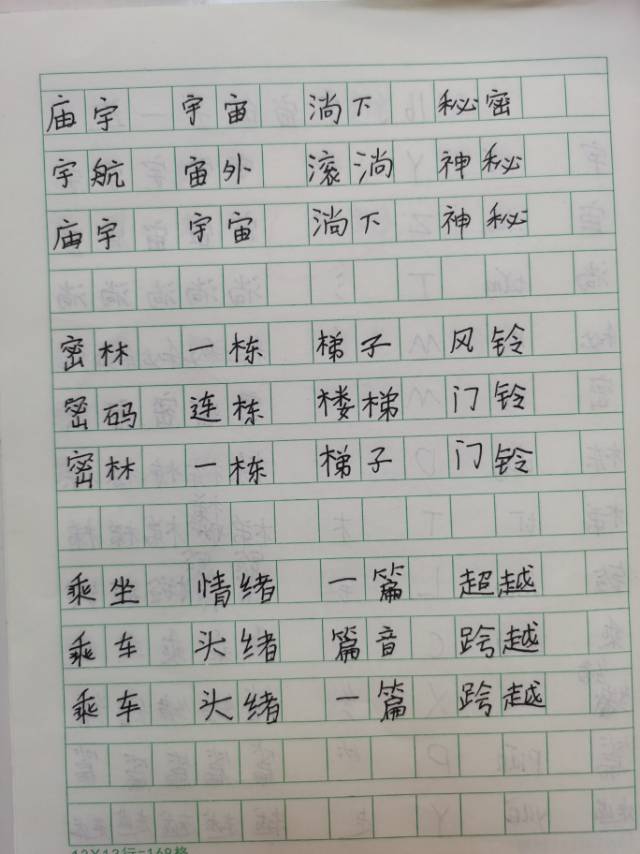 庙宇 宇宙 淌下 秘密
宇航 宙外 滚淌 神秘
庙宇 宇宙 淌下 神秘
密林 一栋 梯子 风铃
密码 连栋 楼梯 门铃
密林 一栋 梯子 门铃
乘坐 情绪 一篇 超越
乘车 头绪 篇音 跨越
乘车 头绪 一篇 跨越